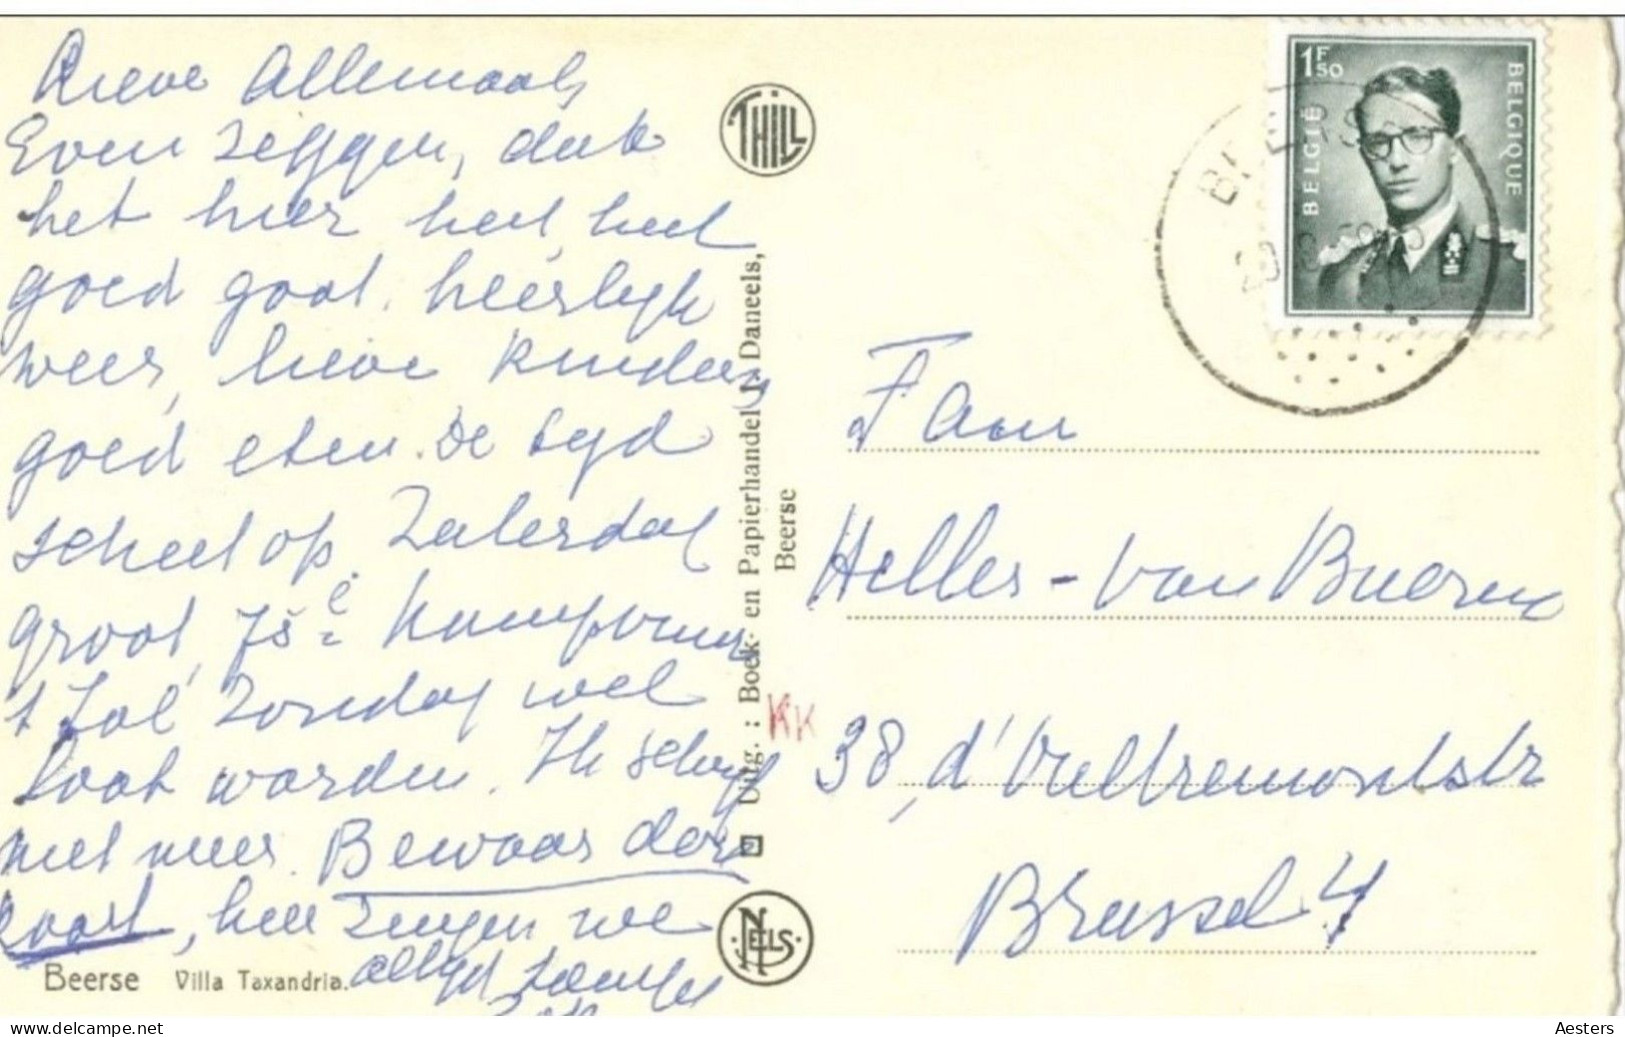 Lieve Allemaal,
Even zeggen, dat
het hier heel, heel
goed gaat, heerlijk
weer, lieve kinderen
goed eten. De tijd
schiet op, Zaterdag
groot kampvuur
't Zal Zondag wel
laat worden. Ik schrijf
niet meer. Bewaar deze
kaart, hier zingen we
altijd
Beerse Villa Taxandria.
THILL
Uitg. : Boek- en Papierhandel J. Daneels,
Beerse
NELS
KK
1F50
BELGIË
BELGIQUE
Fam
Heller-van Bueren
38, d'Oultremontstr
Brussel 4
Aesters